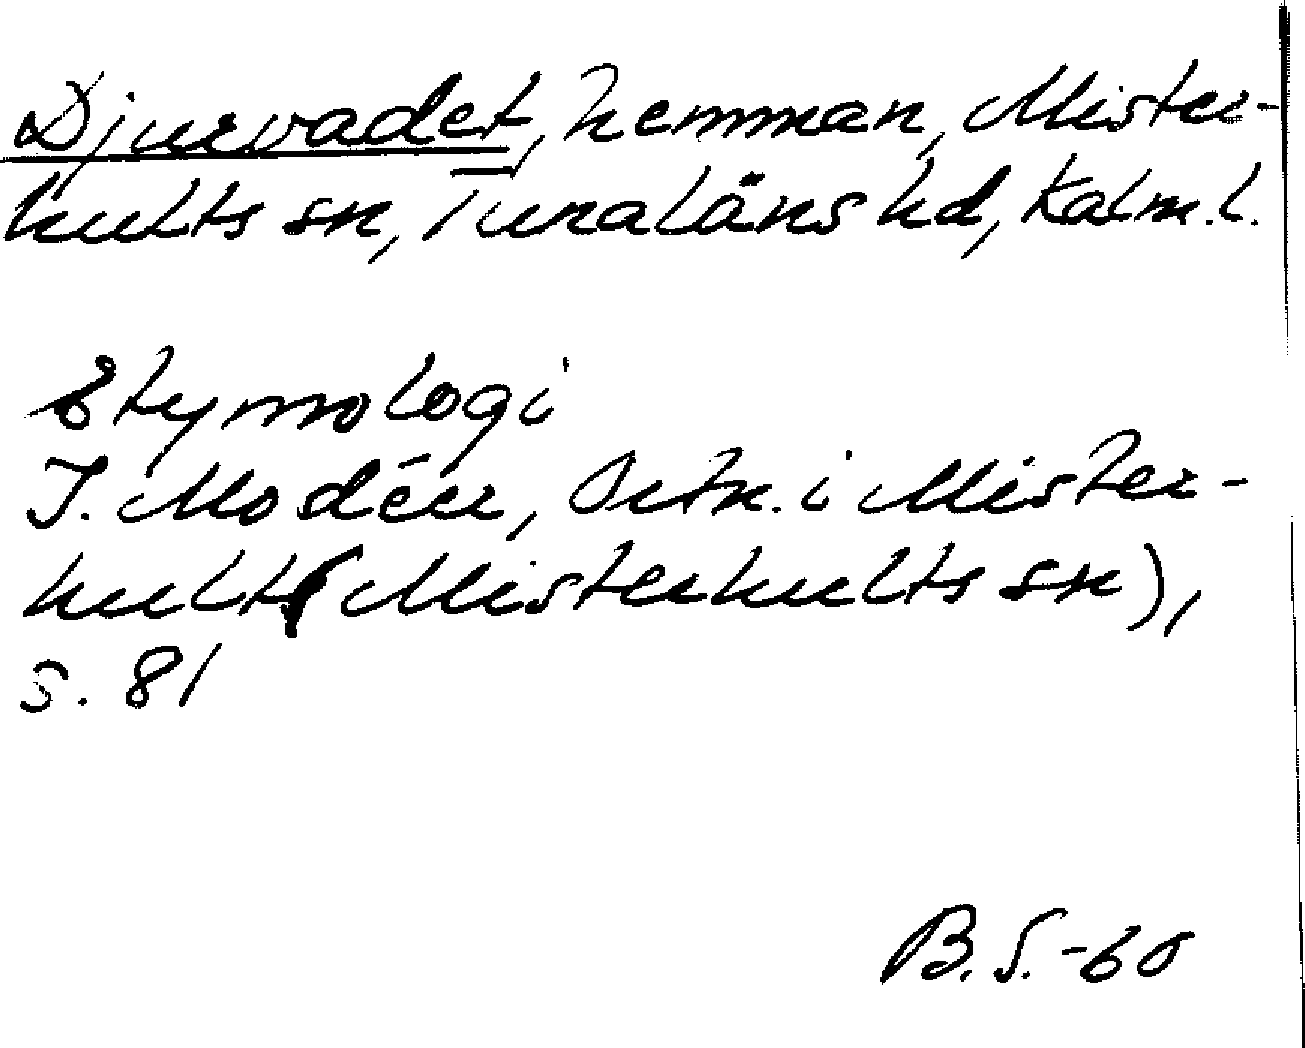 Djurvadet, hemman, Mister-
hults sn, Tunaläns hd, Kalm.l.
Etymologi
I. Modéer, Ortn. i Mister-
hult (Misterhults sn),
s. 81
B.S.-60